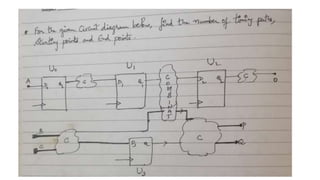 * For the given Circuit diagram below, find the number of timing paths,
Starting points and End points.
U0 U1 U2
A D0 Q0 C D1 Q1 COMBI D2 Q2 C O
B
C C D3 Q3 C P
Q
U3